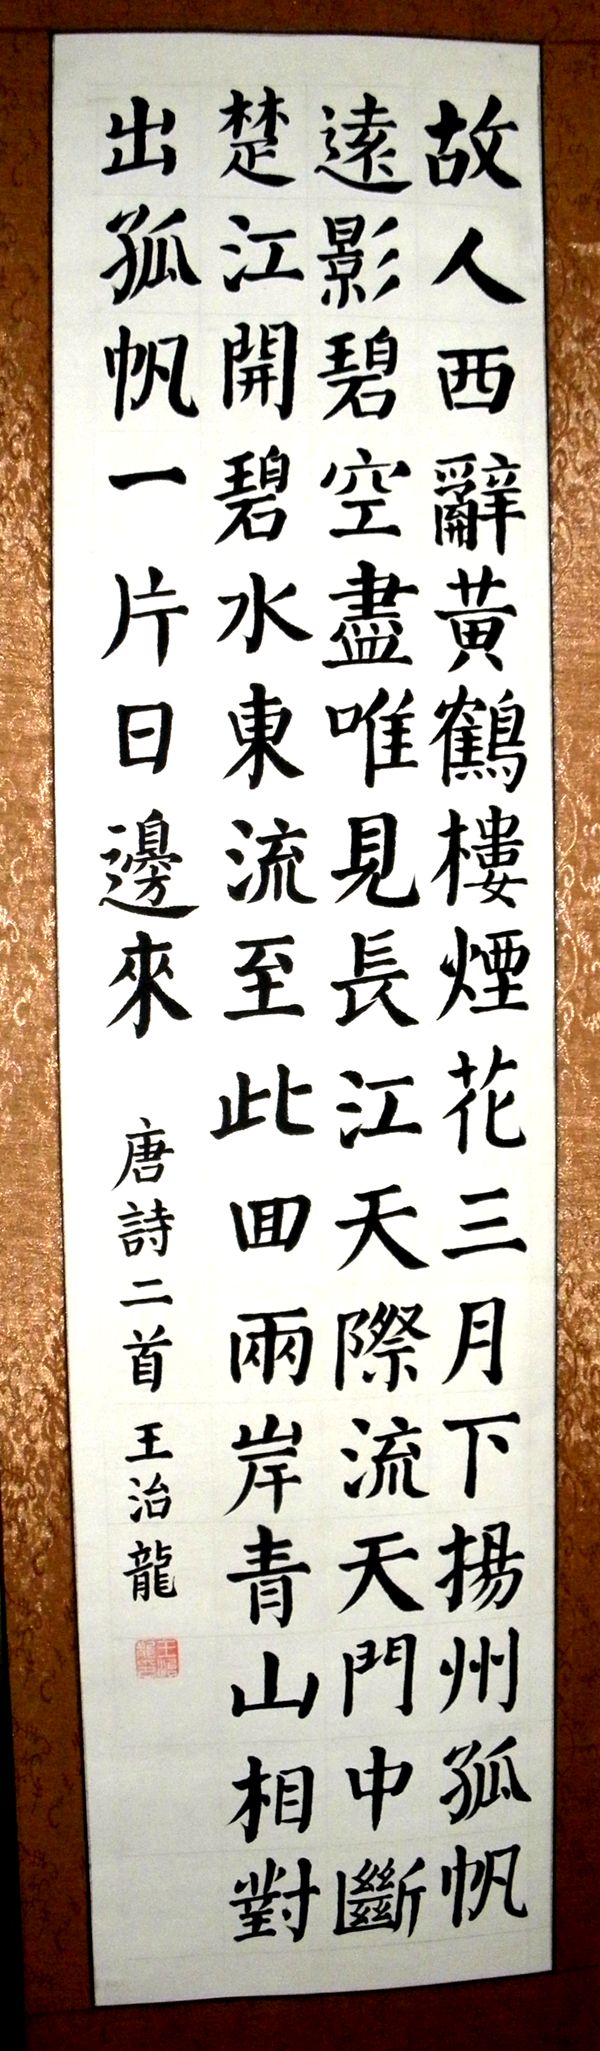 故人西辭黃鶴樓煙花三月下揚州孤帆
遠影碧空盡唯見長江天際流天門中斷
楚江開碧水東流至此回兩岸青山相對
出孤帆一片日邊來 唐詩二首 王治龍